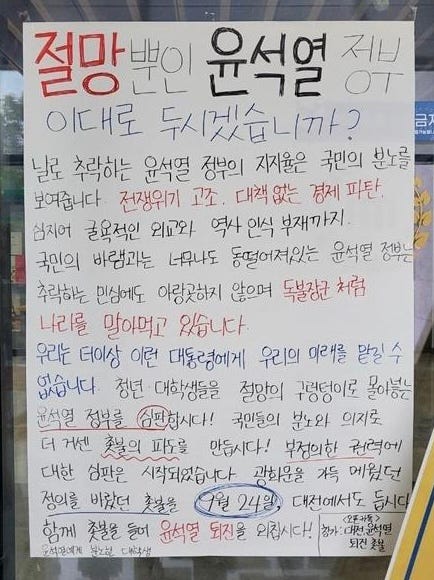 절망뿐인 윤석열 정부
이대로 두시겠습니까?
날로 추락하는 윤석열 정부의 지지율은 국민의 분노를
보여줍니다. 전쟁위기 고조, 대책 없는 경제 파탄,
심지어 굴욕적인 외교와 역사 인식 부재까지.
국민의 바램과는 너무나도 동떨어져있는 윤석열 정부는
추락하는 민심에도 아랑곳하지 않으며 독불장군처럼
나라를 말아먹고 있습니다.
우리는 더이상 이런 대통령에게 우리의 미래를 맡길 수
없습니다. 청년·대학생들을 절망의 구렁텅이로 몰아넣는
윤석열 정부를 심판합시다! 국민들의 분노와 의지로
더 거센 촛불의 파도를 만듭시다! 부정의한 권력에
대한 심판은 시작되었습니다. 광화문을 가득 메웠던
정의를 바랬던 촛불을 9월 24일, 대전에서도 듭시다
함께 촛불을 들어 윤석열 퇴진을 외칩시다!
윤석열에게 분노한 대학생
<오픈카톡>
참가: 대전 윤석열
퇴진 촛불